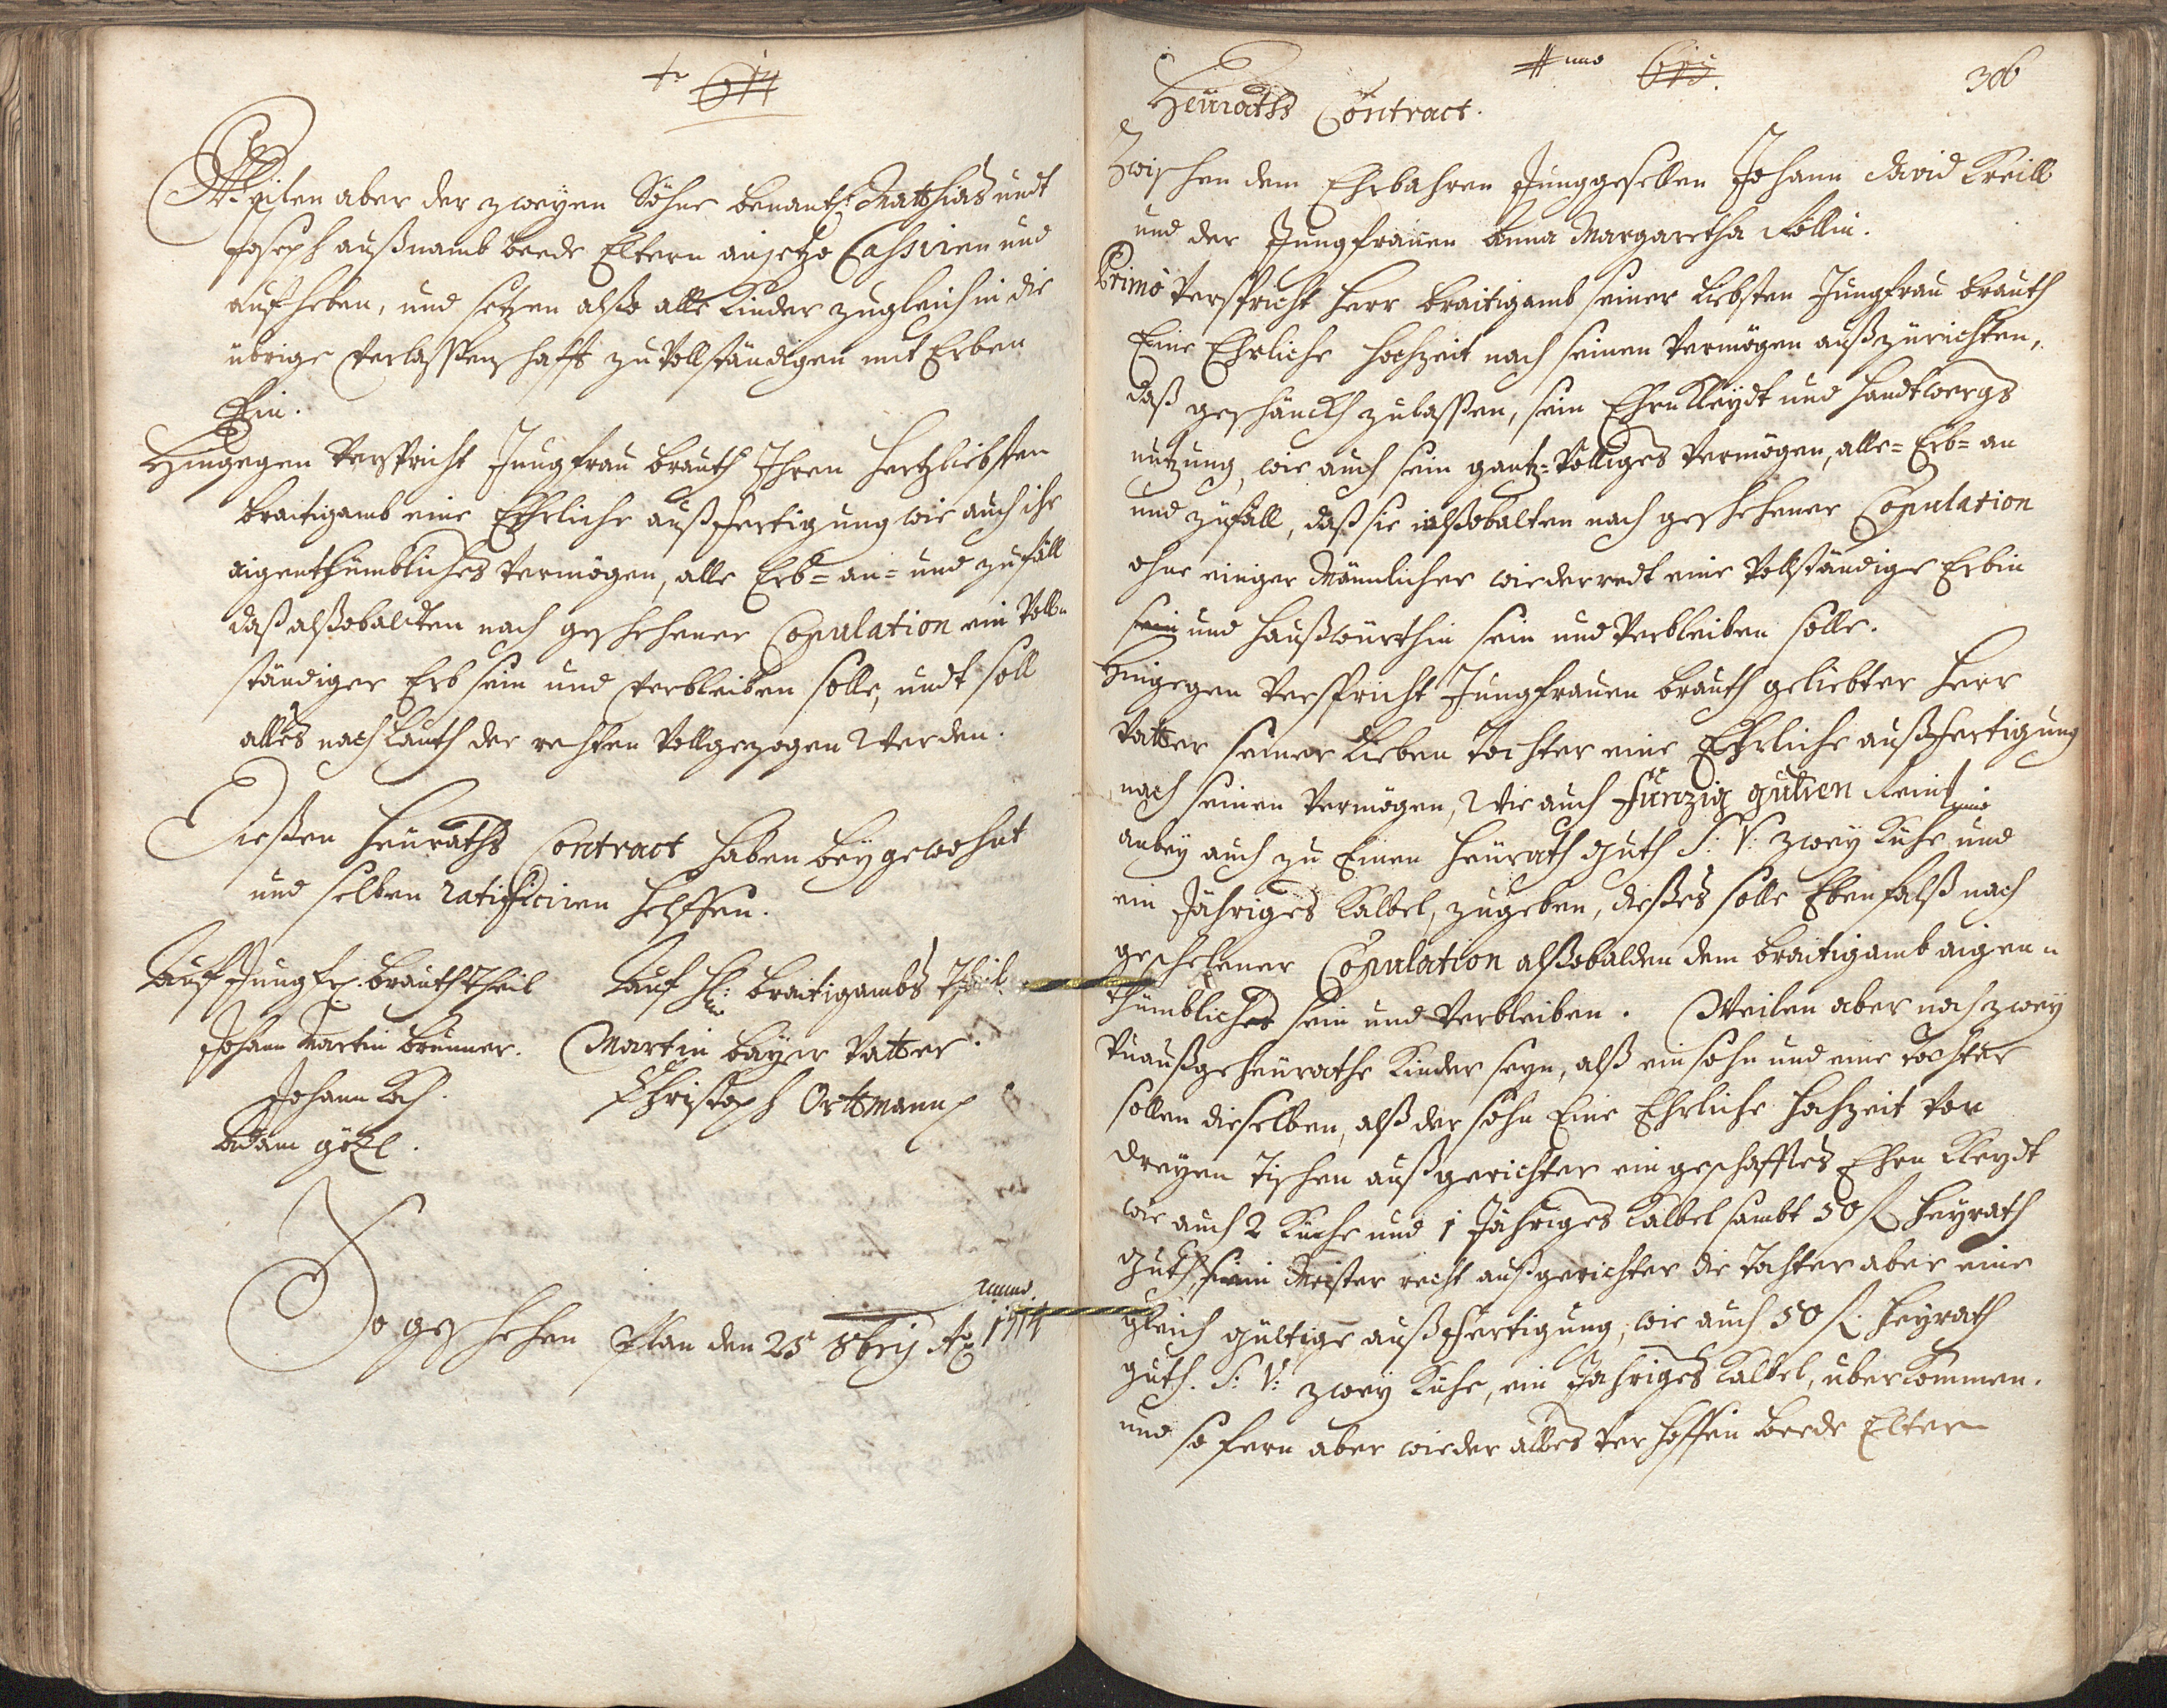 614
Weilen aber der zweyen Söhne benantl: Matthias undt
Joseph außnamb beede Eltern anjetzo Cassiren und
auf heben, und setzen alßo alle Kinder zugleich in die
übrige Verlassenschafft zu Vollständigen mit Erben
Ein.
Hingegen Verspricht Jungfrau brauth Ihren hertzliebsten
braitigamb eine Ehrliche außfertigung wie auch ihr
aigenthümbliches Vermögen, alle Erb= an= und zufäll
daß alßobaldten nach geschehener Copulation ein Voll=
ständiger Erb sein und Verbleiben solle, undt soll
alles nach Lauth der rechten Vollgezogen Werden.
Dießen heüraths Contract haben beÿgewohnt
und selben ratificiren helffen.
Auf Jungfr. brauth Theil
Auf H: braitigambs Theil
Johann Martin brunner.
Martin baÿer Vatter.
Johann Koch.
Christoph Ortmann
Adam götzl.
So geschehen Plan den 25 8brÿ Ao 1714
Anno 615. 306
Heüraths Contract.
Zwischen dem Ehrbahren Junggesellen Johann David Kreill
und der Jungfrauen Anna Margaretha Föllin.
Primo Verspricht herr braitigamb seiner Liebsten Jungfrau brauth
Eine Ehrliche hochzeit nach seinen Vermögen außzurichten,
daß geschänckh zulassen, sein Ehrn Kleydt und handtwergs
nutzung, wie auch sein gantz= Völliges Vermögen, alle= Erb= an
und zufäll, daß sie alßobalten nach geschehener Copulation
ohne einiger Männlicher wiederredt eine Vollständige Erbin
sein und haußwürthin sein und Verbleiben solle.
Hingegen Verspricht Jungfrauen brauth geliebter herr
Vatter seiner Lieben Tochter eine Ehrliche außfertigung
nach seinen Vermögen, Wie auch fünzig gulden Reint
anbeÿ auch zu Einen heürath guth S: V: zweÿ Kühe und
ein Jähriges Kalbel, zugeben, dießes solle Ebenfalß nach
geschehener Copulation alßobalden dem braitigamb aigen=
thümbliches sein und Verbleiben. Weilen aber noch zweÿ
Vnaußgeheürathe Kinder seÿn, alß ein sohn und eine Tochter
sollen dieselben, alß der sohn Eine Ehrliche hochzeit von
dreÿen Tischen außgerichter ein geschafftes Ehrn Kleydt
wie auch 2 Kühe und 1 Jähriges Kalbel sambt 50 fl heÿrath
guth, sein Meister recht außgerichter die Tochter aber eine
gleich gültige außfertigung, wie auch 50 fl. heÿrath
guth. S: V: zweÿ Kühe, ein Jähriges Kalbel, überkommen.
und so fern aber wieder alles Verhoffen beede Eltern